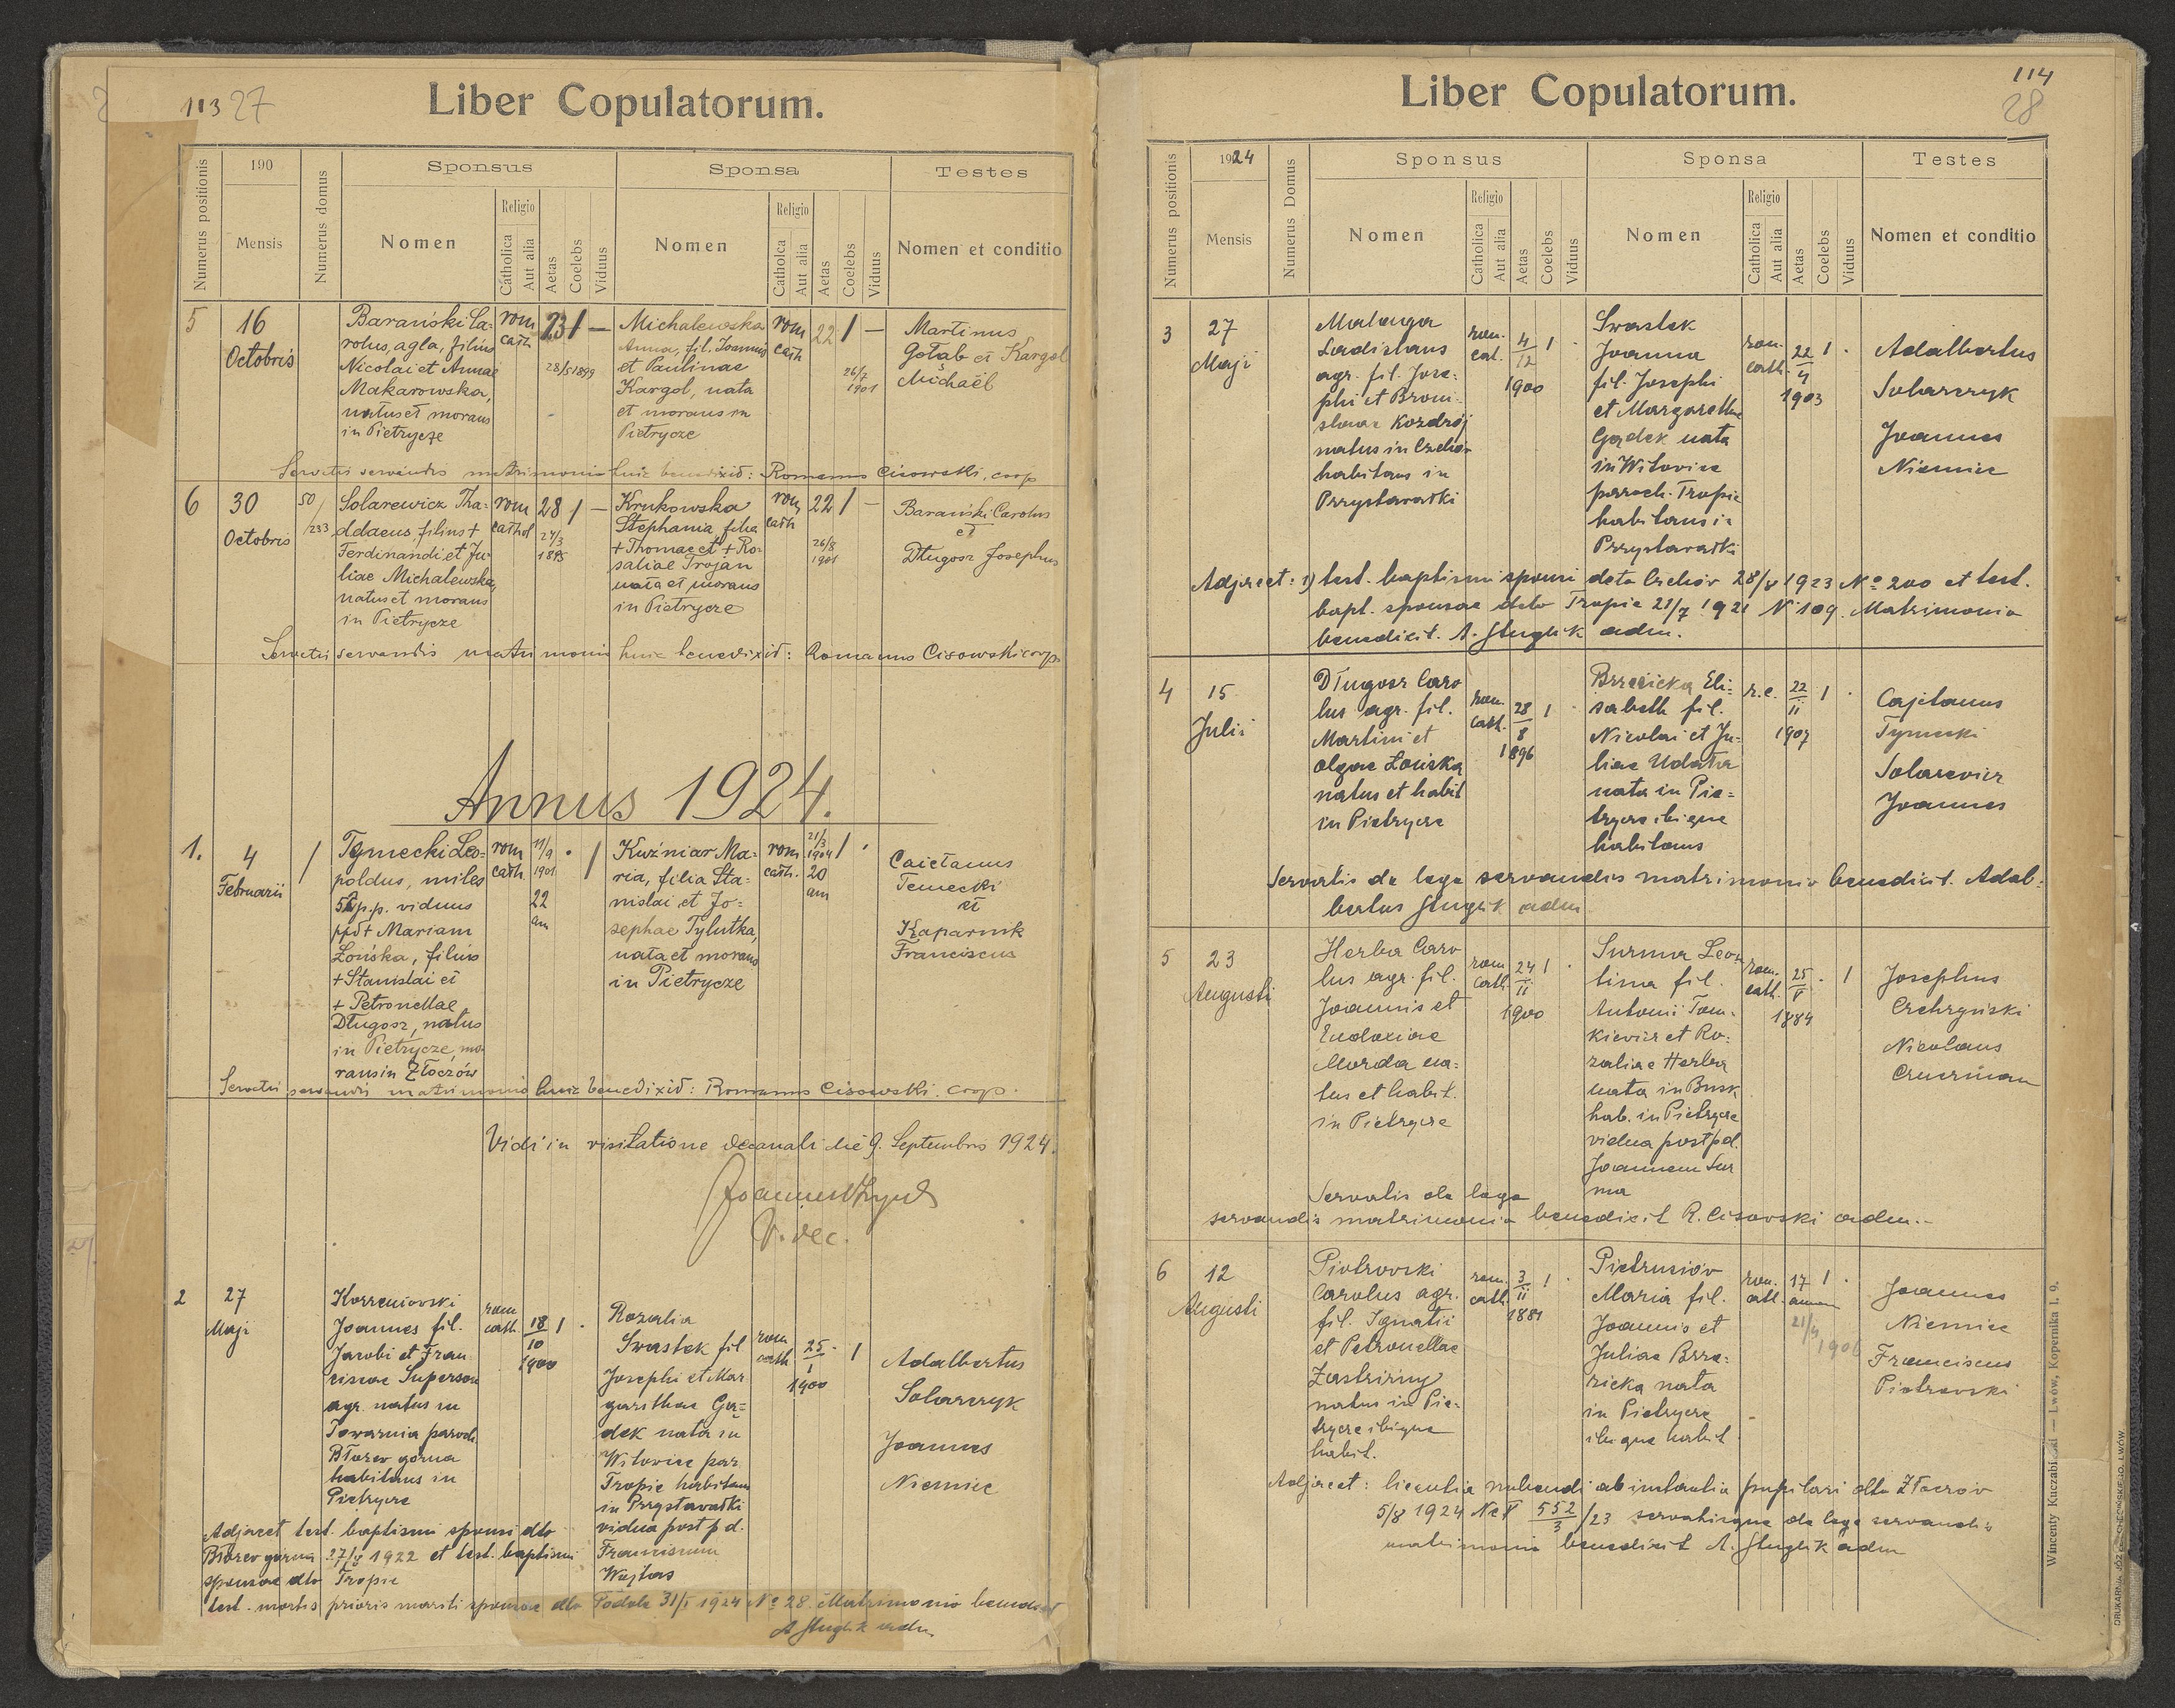 113 27
Liber Copulatorum.
Numerus positionis
190
Mensis
Numerus domus
Sponsus
Nomen
Religio
Catholica
Aut alia
Aetas
Coelebs
Viduus
Sponsa
Nomen
Religio
Catholca
Aut alia
Aetas
Coelebs
Viduus
Testes
Nomen et conditio
5
16
Octobris
Barański Ca-
rolus, agla, filius
Nicolai et Annae
Makarowska,
natus et morans
in Pietrycze
rom
cath
23 1 —
28/5 1899
Michalewska
Anna, fil. Joannis
et Paulinae
Kargol, nata
et morans in
Pietrycze
rom
cath
22 1 —
26/7
1901
Martinus
Gołąb et Kargol
Michaël
Servatis servandis matrimonio huic benedixit: Romanus Cisowski, coop
6
30
Octobris
50/
233
Solarewicz Tha-
ddaeus, filius +
Ferdinandi et Ju-
liae Michalewska,
natus et morans
in Pietrycze
rom
cathol
28 1 —
24/3
1895
Krukowska
Stephania, filia
+ Thomae et + Ro-
saliae Trojan
nata et morans
in Pietrycze
rom
cath
22 1 —
26/8
1901
Barański Carolus
et
Długosz Josephus
Servatis servandis matrimonio huic benedixit: Romanus Cisowski coop.
Annus 1924.
1.
4
Februarii
Tymecki Leo-
poldus, miles
p.p. viduus
ppd + Mariam
Łońska, filius
+ Stanislai et
+ Petronellae
Długosz, natus
in Pietrycze, mo-
rans in Złoczów
rom
cath.
11/9
1901
22
an
1
Kuźniar Ma-
ria, filia Sta-
nislai et Jo-
sephae Tylutka,
nata et morans
in Pietrycze
rom
cath.
21/3
1904
20
an
1
Caietanus
Temecki
et
Kaparnik
Franciscus
Servatis servandis matrimonio huic benedixit: Romanus Cisowski. coop.
Vidi in visitatione decanali die 9. Septembris 1924.
V. dec.
2
27
Maji
Korzeniowski
Joannes fil.
Jacobi et Fran-
ciscae Superson
agr. natus in
Towarnia paroch.
habitans in
Pietrycze
rom
cath.
18
10
1900
1
Rozalia
Swastek fil
Josephi et Mar
garethae Gą=
dek nata in
Witowice par.
Tropie habitans
in Przystawałki
vidua post p d.
Franciscum
Wojtas
rom
cath.
25
1
1900
1
Adalbertus
Solarczyk
Joannes
Niemiec
Adjacet test. baptismi sponsi dto
górna 27/V 1922 et test. baptismi
sponsae dto Tropie
test. mortis prioris mariti sponsae dto Podole 31/I 1924 No 28. Matrimonio benedixit
A Stuglik adm
114
28
Liber Copulatorum.
Numerus positionis
1924
Mensis
Numerus Domus
Sponsus
Nomen
Religio
Catholica
Aut alia
Aetas
Coelebs
Viduus
Sponsa
Nomen
Religio
Catholica
Aut alia
Aetas
Coelebs
Viduus
Testes
Nomen et conditio
3
27
Maji
Malanga
Ladislaus
agr. fil. Jose-
phi et Broni-
slavae Kozdrój
natus in Czchów
habitans in
Przystawałki
rom.
cat.
4
12
1900
1
Swastek
Joanna
fil. Josephi
et Margarethae
Gądek nata
in Witowice
paroch. Tropie
habitans in
Przystawałki
rom.
cath.
22
4
1903
1
Adalbertus
Solarczyk
Joannes
Niemiec
Adjacet: 1) test. baptismi sponsi dato Czchów 28/V 1923 No 200 et test.
bapt. sponsae dato Tropie 21/7 1921 N 109. Matrimonio
benedixit. A. Stuglik adm.
4
15
Julii
Długosz Caro
lus agr. fil.
Martini et
Olgae Łońska
natus et habit
in Pietrycze
rom.
cath.
28
8
1896
1
Brzezicka Eli=
sabeth fil.
Nicolai et Ju-
liae Udaha
nata in Pie=
trycze ibique
habitans
r.c.
22
II
1907
1
Cajetanus
Tymecki
Solarewicz
Joannes
Servatis de lege servandis matrimonio benedixit. Adal-
bertus Stuglik adm
5
23
Augusti
Herba Caro
lus agr. fil.
Joannis et
Eudoxiae
Morda na=
tus et habit.
in Pietrycze
rom.
cath.
24
II
1900
1
Surma Leon
tina fil.
Antonii Tom-
kiewicz et Ro-
zaliae Herba
nata in Busk
hab. in Pietrycze
vidua post pd.
Joannem Sur
ma
rom.
cath.
25
V
1884
1
Josephus
Czchryński
Nicolaus
Servatis de lege
servandis matrimonio benedixit R. Cisowski adm.-
6
12
Augusti
Piotrowski
Carolus agr.
fil. Ignatii
et Petronellae
Zastrizny
natus in Pie-
trycze ibique
habit.
rom.
cath.
3
II
1881
1
Pietrusiów
Maria fil.
Joannis et
Juliae Brze=
zicka nata
in Pietrycze
ibique habit
rom.
cath.
17
annor
21/4
1906
1
Joannes
Niemiec
Franciscus
Piotrowski
Adjacet: licentia nubendi ab instantia pupilari dto Złoczów
5/8 1924 Nc V 552/3 /23 servatisque de lege servandis
matrimonio benedixit A. Stuglik adm
— Lwów, Kopernika l. 9.